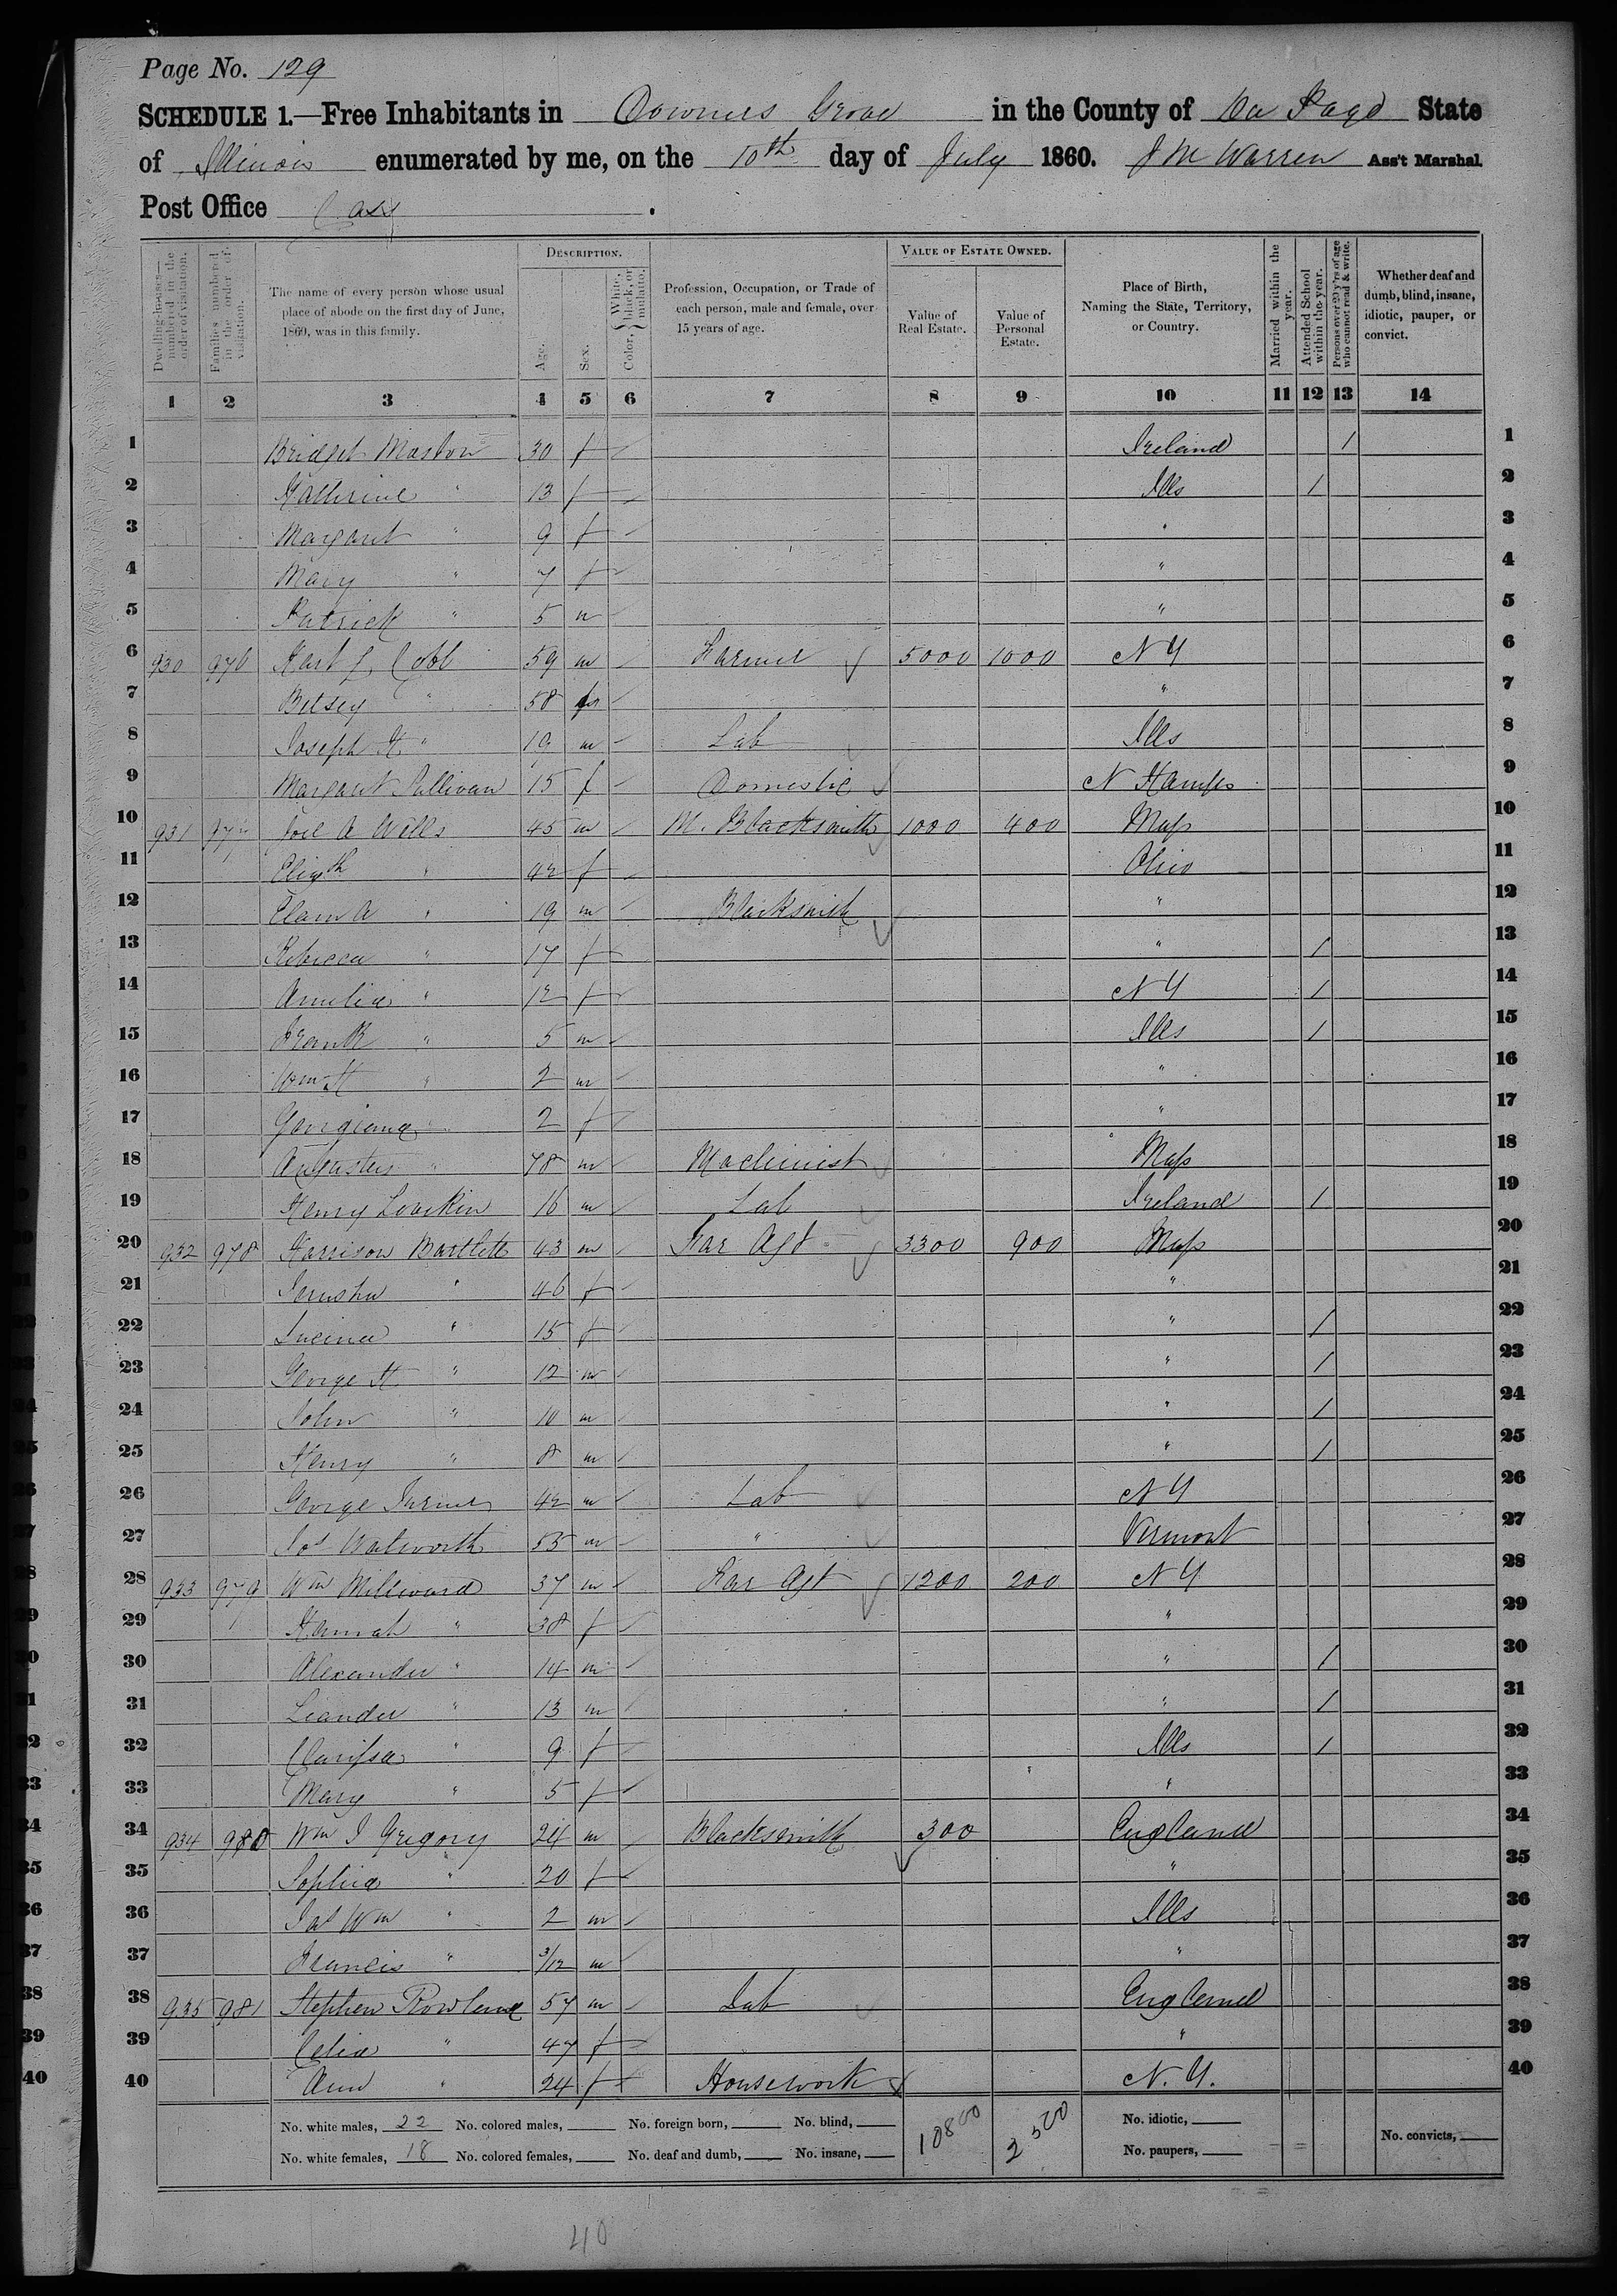 Page No. 129
SCHEDULE 1.—Free Inhabitants in Downers Grove in the County of Du Page State
of Illinois enumerated by me, on the 10th day of July 1860. J M Warren Ass't Marshal.
Post Office Cass
Dwelling-houses—numbered in the order of visitation.
Families numbered in the order of visitation.
The name of every person whose usual place of abode on the first day of June, 1860, was in this family.
DESCRIPTION.
Age.
Sex.
Color, { White, black, or mulatto.
Profession, Occupation, or Trade of each person, male and female, over 15 years of age.
VALUE OF ESTATE OWNED.
Value of Real Estate.
Value of Personal Estate.
Place of Birth, Naming the State, Territory, or Country.
Married within the year.
Attended School within the year.
Persons over 20 y'rs of age who cannot read & write.
Whether deaf and dumb, blind, insane, idiotic, pauper, or convict.
1 2 3 4 5 6 7 8 9 10 11 12 13 14
1 Bridget 30 f Ireland / 1
2 Katherine " 13 f Ills / 2
3 Margaret " 9 f " 3
4 Mary " 7 f " 4
5 Patrick " 5 m " 5
6 930 976 Hart L Cobb 59 m Farmer 5000 1000 N Y 6
7 Betsey " 58 f " 7
8 Joseph H " 19 m Lab Ills 8
9 Margaret Sullivan 15 f Domestic N Hamps 9
10 931 977 Joel A Wells 45 m M. Blacksmith 1000 400 Mass 10
11 Elizth " 42 f Ohio 11
12 Elam A " 19 m Blacksmith " 12
13 Rebecca " 17 f " / 13
14 Amelia " 12 f N Y / 14
15 Frank " 5 m Ills / 15
16 Wm H " 2 m " 16
17 Georgiana " 2 f " 17
18 Augustus " 78 m Machinist Mass 18
19 Henry 16 m Lab Ireland / 19
20 932 978 Harrison Bartlett 43 m Far Agt 3300 900 Mass 20
21 Jerusha " 46 f " 21
22 Lucina " 15 f " / 22
23 George H " 12 m " / 23
24 John " 10 m " / 24
25 Henry " 8 m " / 25
26 George 42 m Lab N Y 26
27 Jos Walworth 55 m " Vermont 27
28 933 979 Wm Millward 37 m Far Agt 1200 200 N Y 28
29 Hannah " 38 f " 29
30 Alexander " 14 m " / 30
31 Leander " 13 m " / 31
32 Clarissa " 9 f Ills / 32
33 Mary " 5 f " 33
34 934 980 Wm J Gregory 24 m Blacksmith 300 England 34
35 Sophia " 20 f " 35
36 Jas Wm " 2 m Ills 36
37 Francis " 3/12 m " 37
38 935 981 Stephen Rowland 57 m Lab England 38
39 Celia " 47 f " 39
40 Ann " 24 f Housework N. Y. 40
No. white males, 22 No. colored males, No. foreign born, No. blind, 10800 2500 No. idiotic, No. convicts,
No. white females, 18 No. colored females, No. deaf and dumb, No. insane, No. paupers,
40